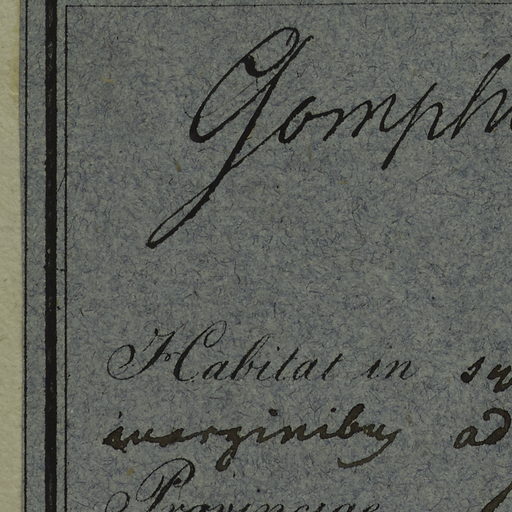 Gomph
Habitat in sy
marginibus ad
Provinciae